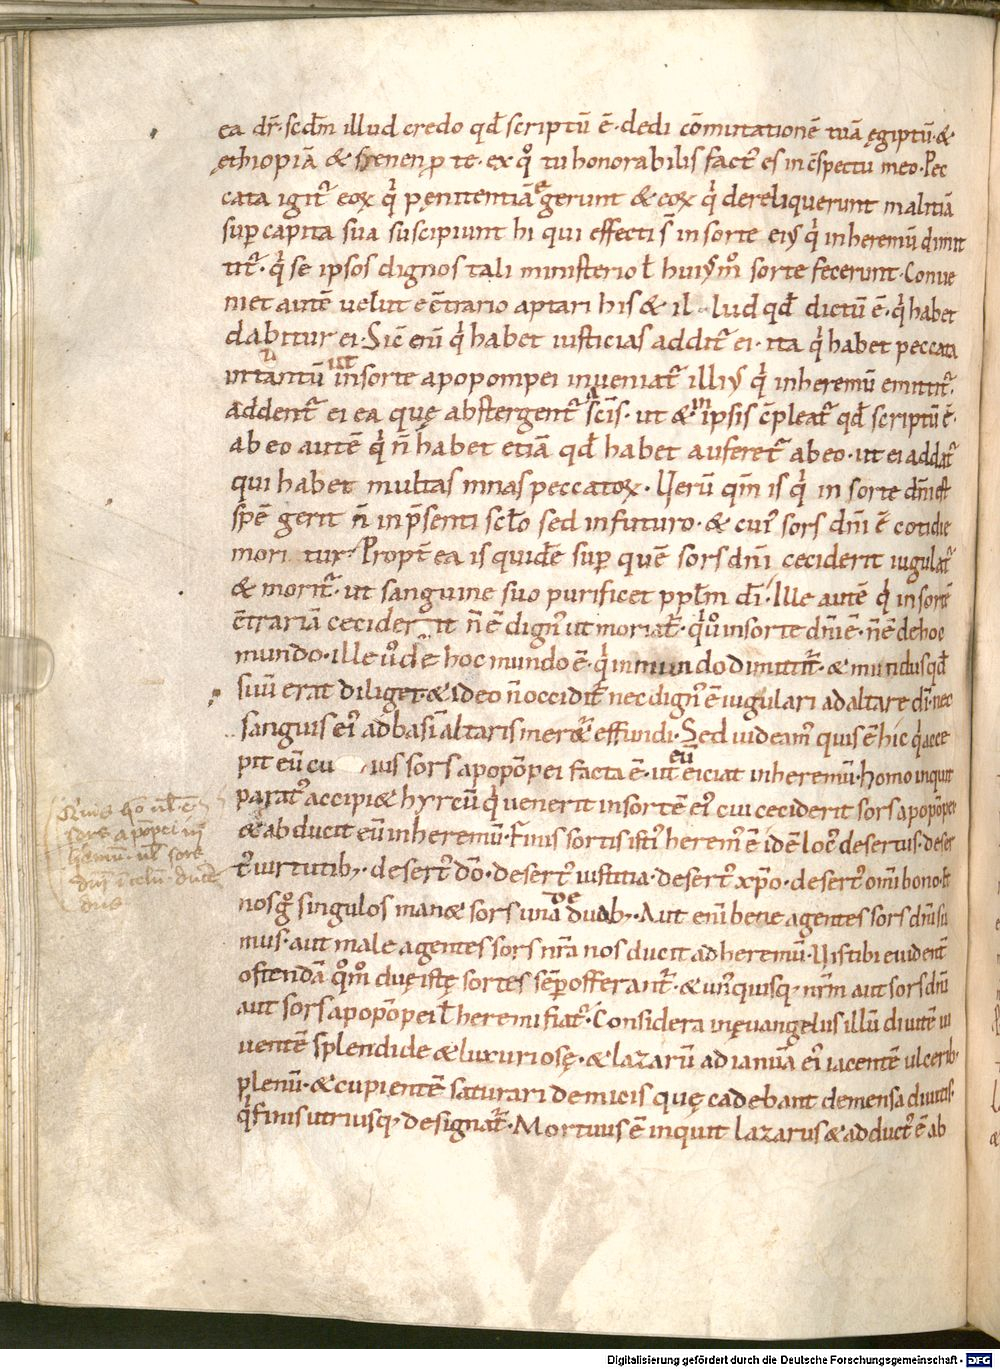 ea dr̄· scdm̄ illud credo qđ scriptū ē· dedi cōmutationē tuā ęgiptū· &
ęthiopiā & syenen ꝑ te· ex qͦ tu honorabilis factꝰ es in c̄spectu meo· Pec
cata igit᷑ eoꝝ qͥ pęnitentiā agerunt & eoꝝ qͥ dereliquerunt malitiā
suꝑ capita sua suscipiunt hi qui effecti s̄ in sorte eiꝰ qͥ in heremū dimit
tit᷑· qͥ se ipsos dignos tali ministerio ł huiꝰmͦ sorte fecerunt· Conue
niet autē uelut e c̄trario aptari his & il lud qđ dictū ē· qͥ habet
dabitur ei· Sic̄ eni̅ qͥ habet iusticias addit᷑ ei· ita qͥ habet peccata
intantū ut in sorte apopompei inueniat᷑ illiꝰ qͥ in heremū emittit᷑·
addent᷑ ei ea quę abstergent᷑ a sc̄is· ut & in ipsis c̄pleat᷑ qđ scriptū ē·
ab eo autē qͥ n̄ habet etiā qđ habet auferet᷑ ab eo· ut ei addat᷑
qui habet multas mnas peccatoꝝ· Uerū qm̄ is qͥ in sorte dn̄i est
spē gerit n̄ in p̄senti scło sed in futuro· & cuiꝰ sors dn̄i ē cotidie
mori tur· Propt̄ ea is quidē suꝑ quē sors dn̄i ceciderit iugulat᷑
& morit᷑· ut sanguine suo purificet ppłm dī· Ille autē qͥ in sortē
c̄trariā cecider it n̄ ē dignꝰ ut moriat᷑· qͥ uͦ in sorte dn̄i ē· n̄ ē de hoc
mundo· ille uͦ de hoc mundo ē· qͥ in mundo dimittit᷑· & mundus qđ
suū erat diliget· & ideo n̄ occidit᷑ nec dignꝰ ē iugulari ad altare dn̄i· nec
sanguis eiꝰ ad basi̅ altaris meret᷑ effundi· Sed uideamꝰ quis ē hic qͥ acce
pit eū cu ius sors apopōpei facta ē· ut eū eiciat in heremū· homo inquit
paratꝰ accipi& hyrcū qͥ uenerit in sortē eiꝰ cui ceciderit sors apopōpei
& abducit eū in heremū· Finis sortis istiꝰ heremꝰ ē idē locꝰ desertus· deser
tꝰ uirtutibꝫ· desertꝰ do̅· desertꝰ iustitia· desertꝰ xp̄o· desertꝰ omi̅ bono· &
nos gͦ singulos man& sors una de duabꝫ· Aut eni̅ bene agentes sors dn̄i su
mus· aut male agentes sors nr̄a nos ducit ad heremū· Uis tibi euident̄
ostendā qͦmͦ duę istę sortes sēꝑ offerant᷑· & unꝰquisqꝫ nr̄m aut sors dn̄i
aut sors apopōpei ł heremi fiat᷑· Considera in ęuangeliis illū diuitē ui
uentē splendide & luxuriosę· & lazarū ad ianuā eiꝰ iacentē ulceribꝫ
plenū· & cupientē saturari de micis quę cadebant de mensa diuitis·
qͥ finis utriusqꝫ designat᷑· Mortuus ē inquit lazarus & adductꝰ ē ab
Digitalisierung gefördert durch die Deutsche Forschungsgemeinschaft - DFG